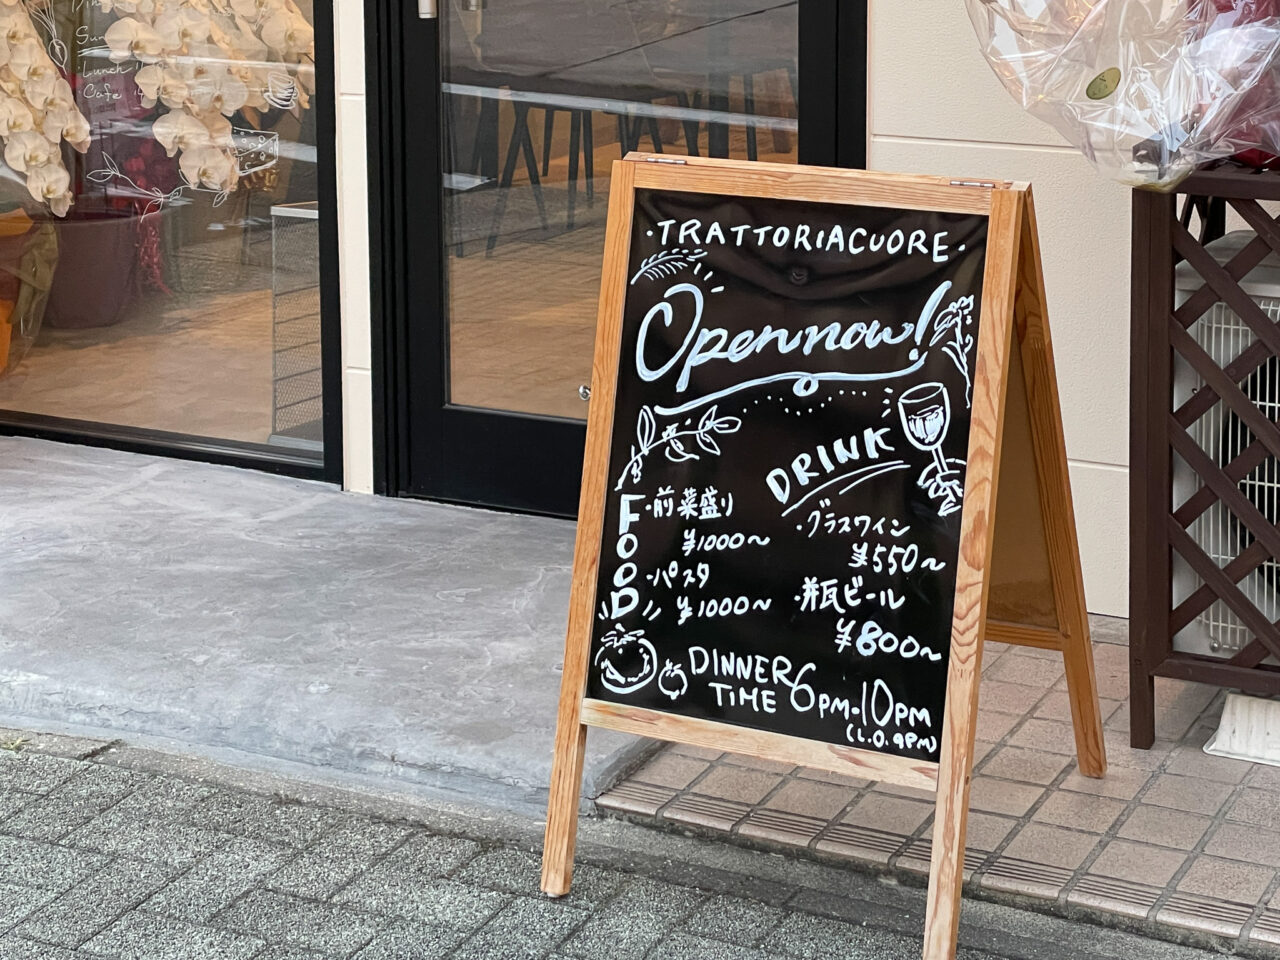 Sun
Lunch
Cafe
・TRATTORIACUORE・
Open now!
DRINK
FOOD
・前菜盛り
¥1000～
・パスタ
¥1000～
・グラスワイン
¥550～
・瓶ビール
¥800～
DINNER TIME 6PM-10PM
(L.O.9PM)